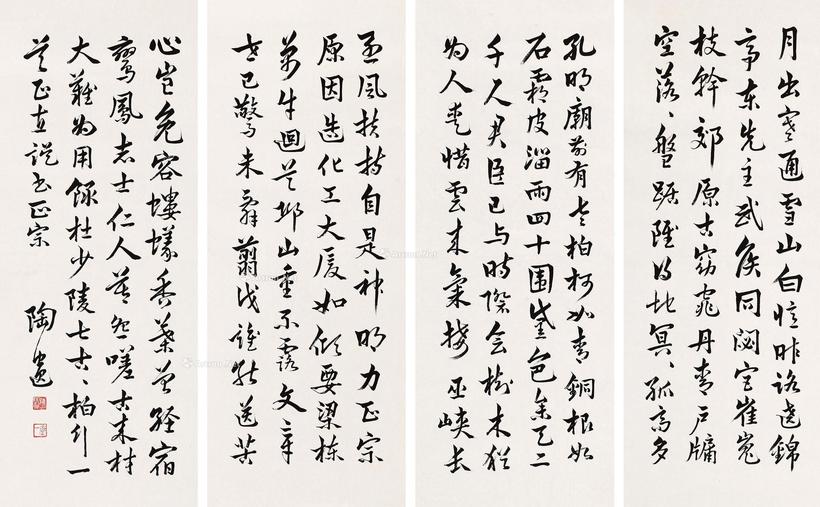 月出寒通雪山白憶昨路遶錦
亭東先主武侯同閟宮崔嵬
枝幹郊原古窈窕丹青戶牖
空落〻盤踞雖得地冥〻孤高多
孔明廟前有老柏柯如青銅根如
石霜皮溜雨四十圍黛色參天二
千尺君臣已与時際会樹木猶
為人愛惜雲來氣接巫峽長
烈風扶持自是神明力正直
原因造化工大廈如傾要梁棟
萬牛迴首邱山重不露文章
世已驚未辭翦伐誰能送苦
心豈免容螻蟻香葉曾經宿
鸞鳳志士仁人莫怨嗟古來材
大難為用錄杜少陵七古〻柏行一
首
陶邃